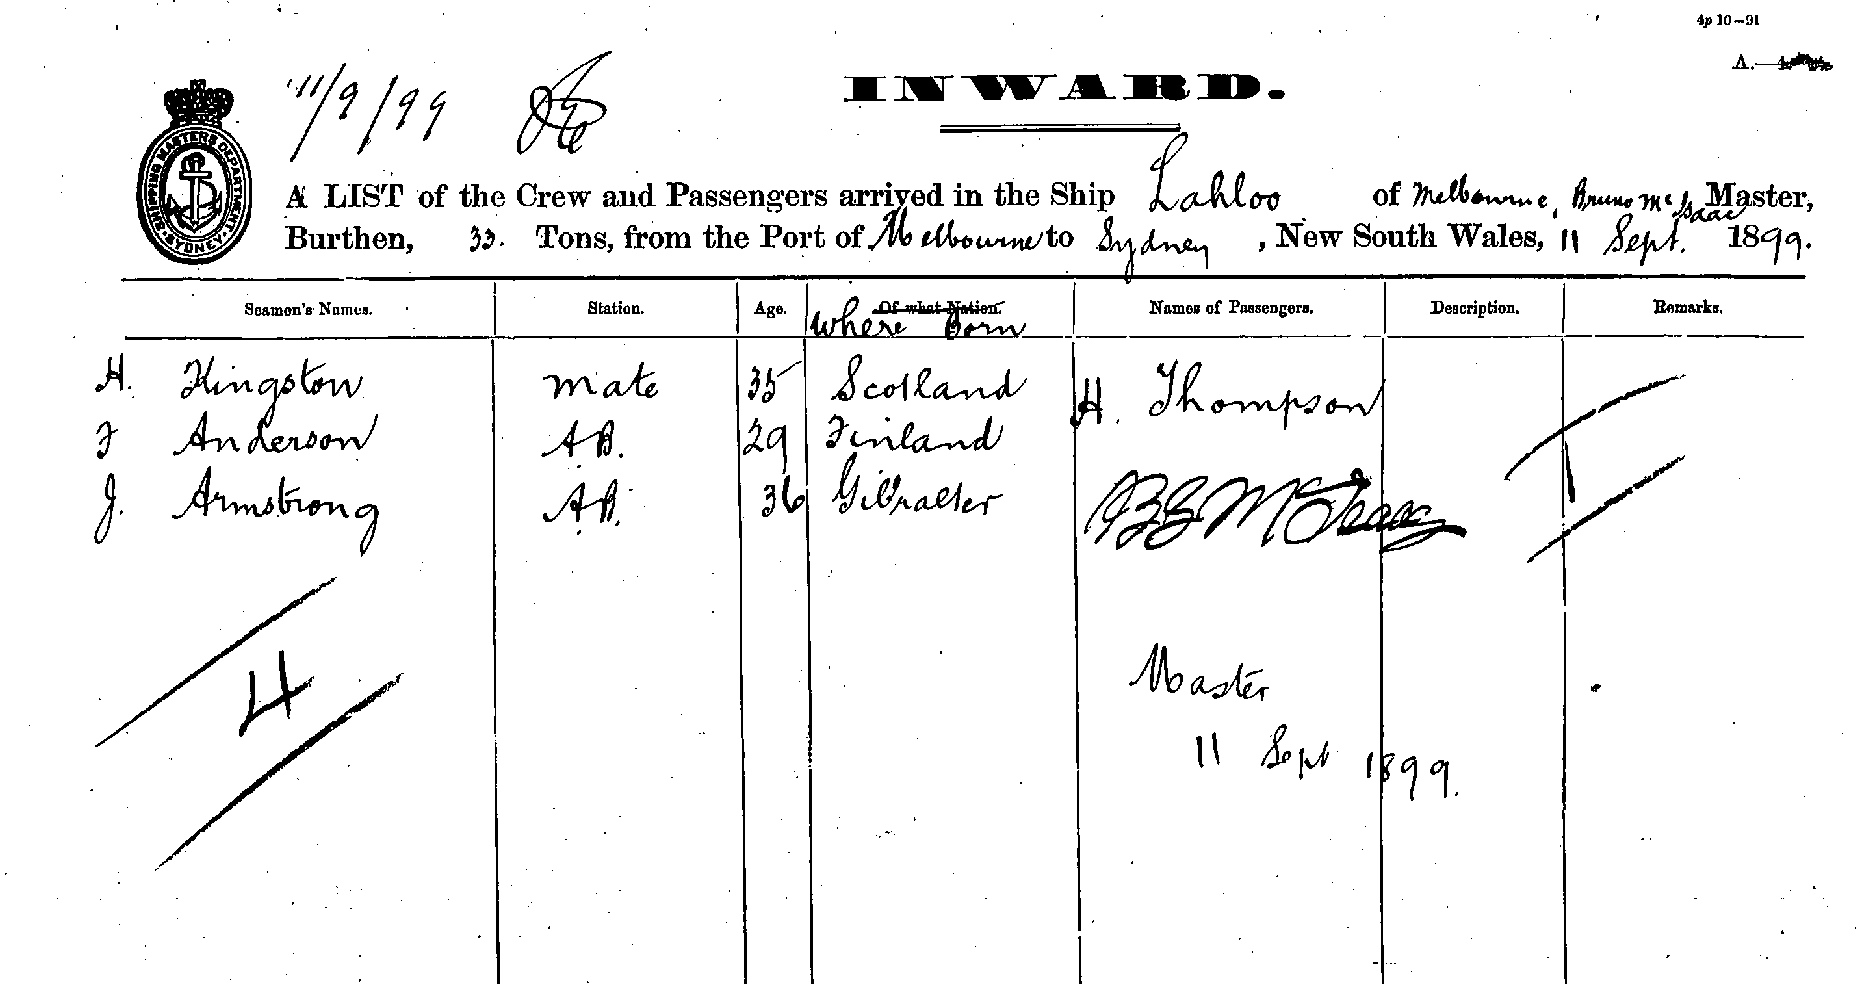 4p 10–91
A.
11/9/99
INWARD.
SHIPPING MASTERS DEPARTMENT SYDNEY
A LIST of the Crew and Passengers arrived in the Ship Lahloo of Melbourne, Bruno McIsaac Master,
Burthen, 33. Tons, from the Port of Melbourne to Sydney, New South Wales, 11 Sept. 1899.
Seamen's Names. Station. Age. Of what Nation. Names of Passengers. Description. Remarks.
where born
H. Kingston mate 35 Scotland H. Thompson
F Anderson A.B. 29 Finland
J. Armstrong A.B. 36 Gibralter
1
McIsaac
4
Master
11 Sept 1899.